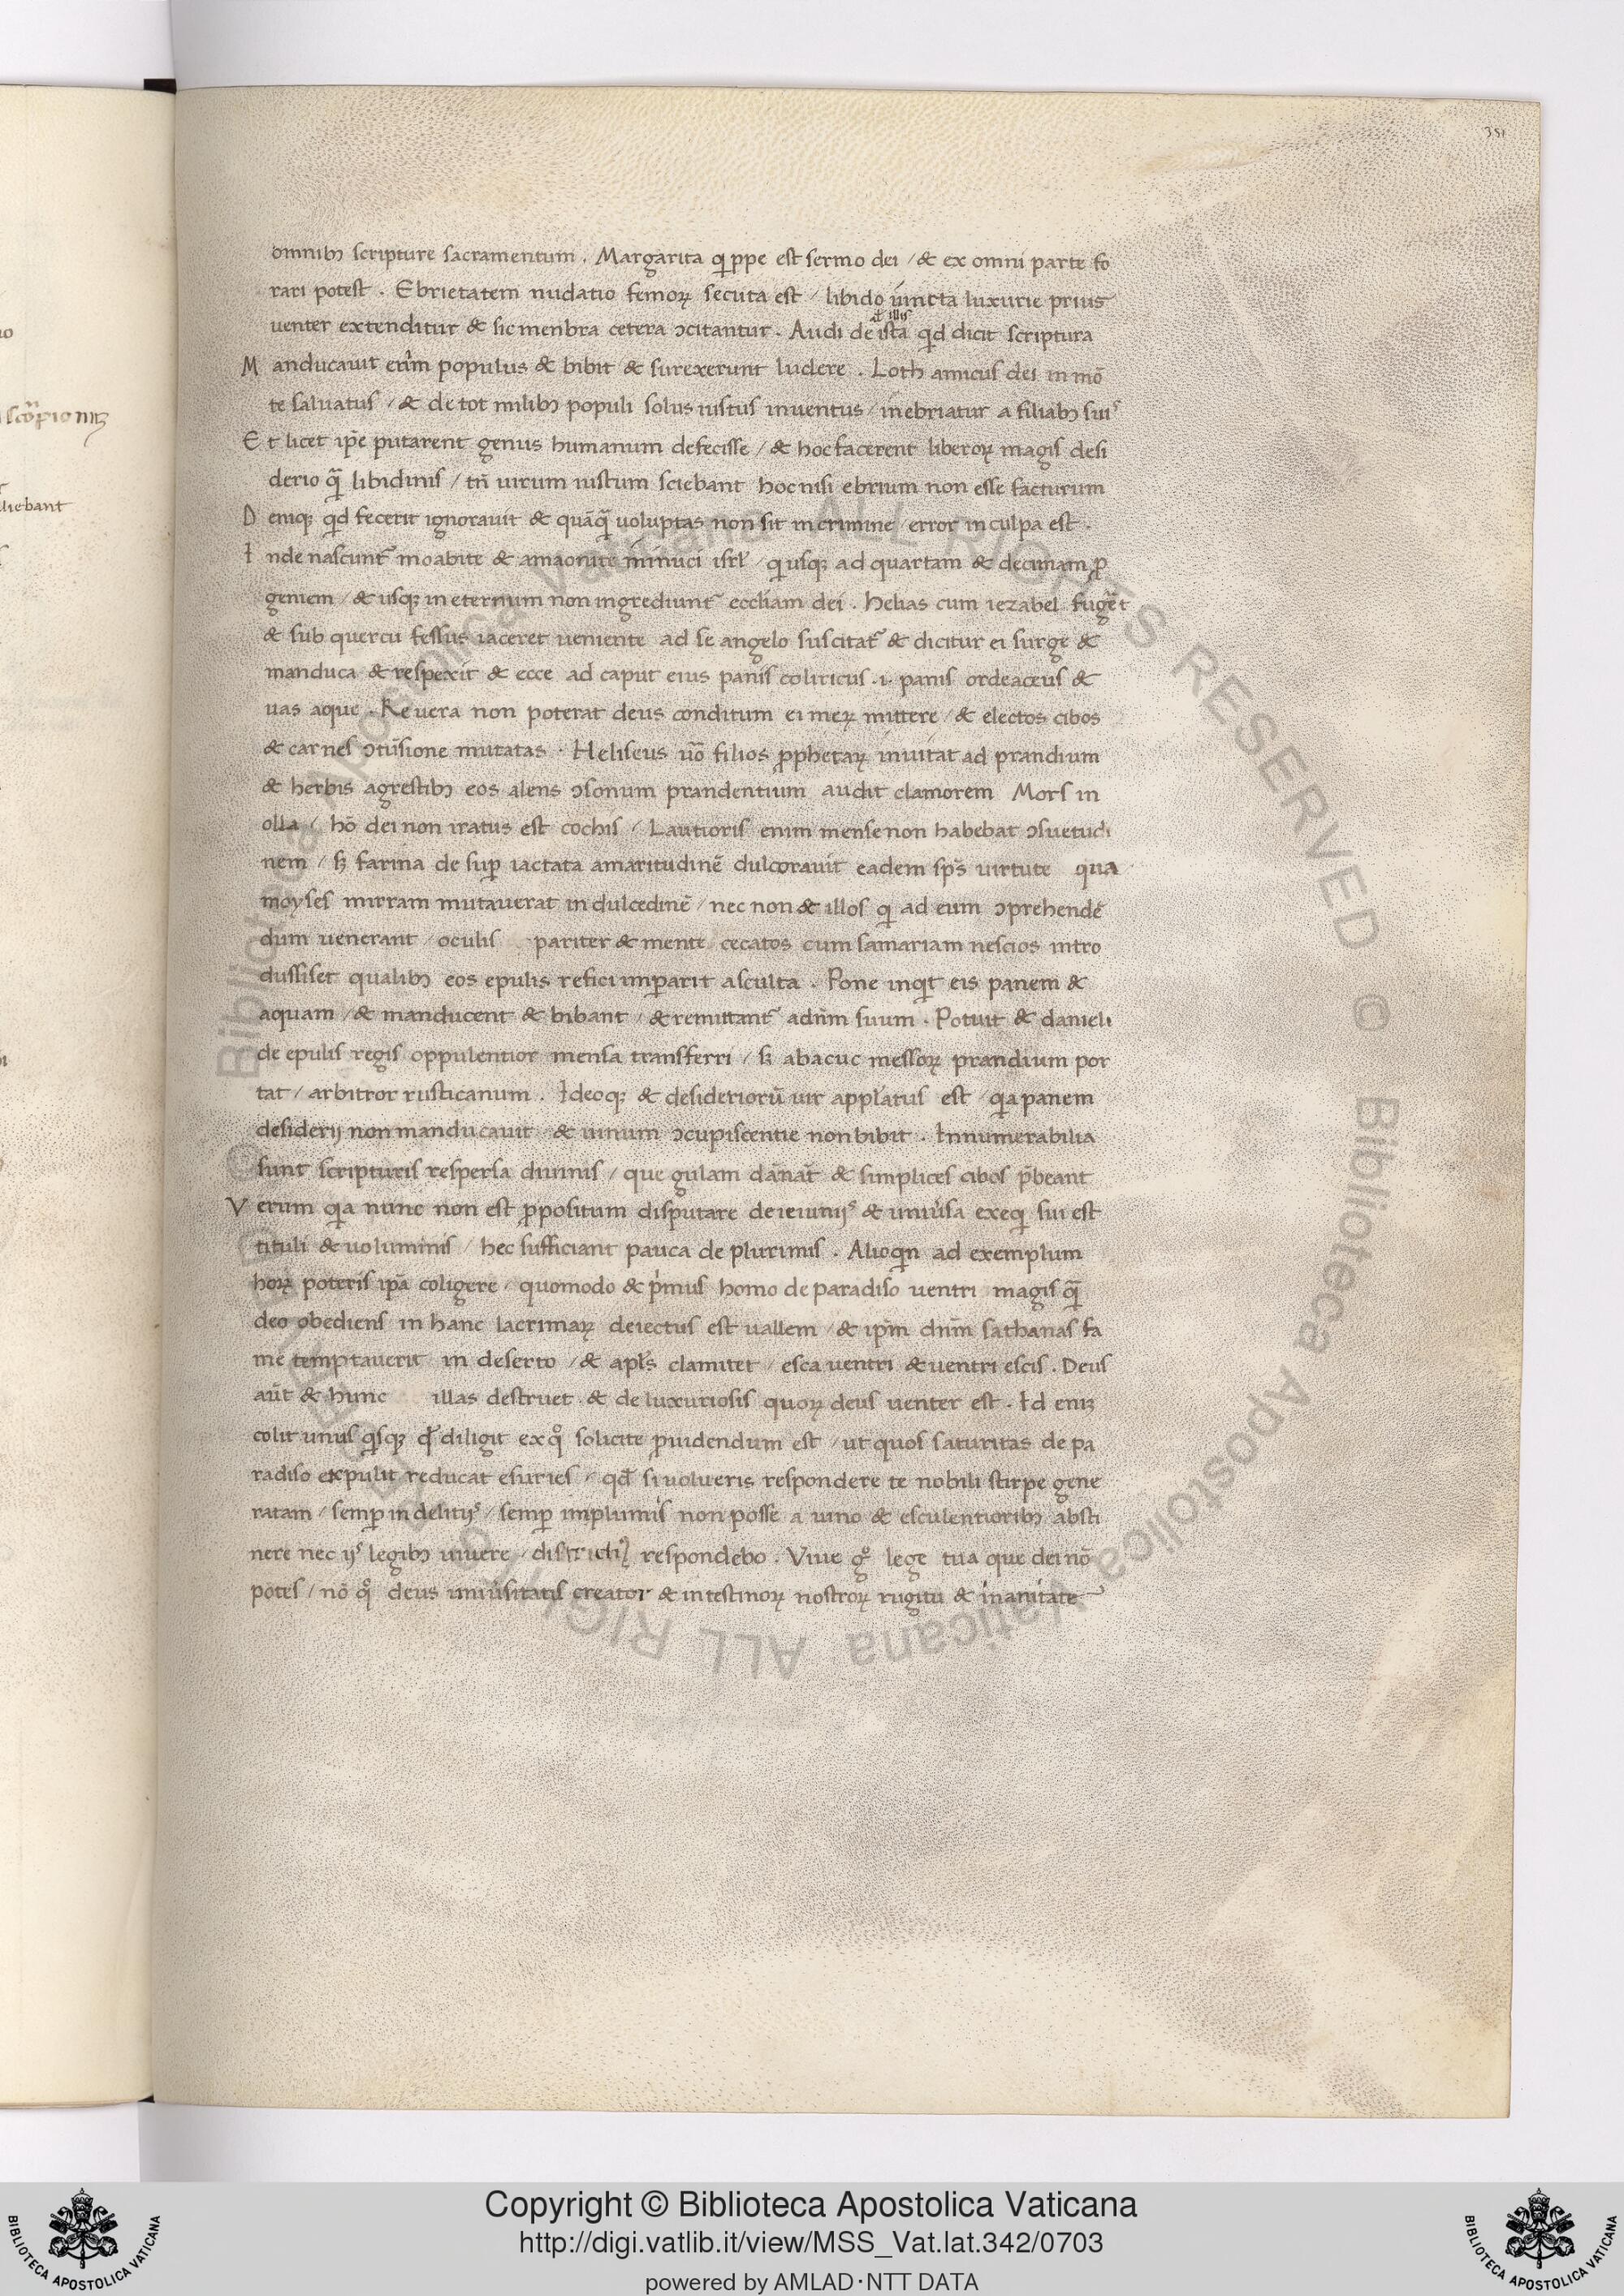 351
omnibꝫ scripture sacramentum . Margarita qippe est sermo dei / & ex omni parte fo
rari potest . Ebrietatem nudatio femorꝝ secuta est / libido iuncta luxurie prius
al' illis
uenter extenditur & sic menbra cetera ↄcitantur . Audi de ista qd dicit scriptura
Manducauit enim populus & bibit & surexerunt ludere . Loth amicus dei in mō
te saluatus / & de tot milibꝫ populi solus iustus inuentus / inebriatur a filiabꝫ suis
Et licet ip̄e putarent genus humanum defecisse / & hoc facerent liberorꝝ magis desi
derio q̄ libidinis / tn̄ uirum iustum sciebant hoc nisi ebrium non esse facturum
Deniqꝫ qd fecerit ignorauit & quāq̄ uoluptas non sit in crimine / error in culpa est .
Inde nascunt᷑ moabite & amaonite inimici isrl' / qi usqꝫ ad quartam & decimam ꝓ
geniem / & usqꝫ in eternum non ingrediunt᷑ eccliam dei . Helias cum iezabel fuger̄t
& sub quercu fessus iaceret ueniente ad se angelo suscitat᷑ & dicitur ei surge &
manduca & respexit & ecce ad caput eius panis coliricus .i. panis ordeaceus &
uas aque . Re uera non poterat deus conditum ei merꝝ mittere / & electos cibos
& carnes ↄtusione mutatas . Heliseus uō filios ꝓphetarꝝ inuitat ad prandium
& herbis agrestibꝫ eos alens ↄsonum prandentium audit clamorem Mors in
olla / hō dei non iratus est cochis / Lautioris enim mense non habebat ↄsuetudi
nem / sꝫ farina de suꝑ iactata amaritudinē dulcorauit eadem sp̄s uirtute qua
moyses mirram mutauerat in dulcedinē / nec non & illos qi ad eum ↄprehendē
dum uenerant / oculis pariter & mente cecatos cum samariam nescios intro
dussiset qualibꝫ eos epulis refici imꝑarit asculta . Pone inqit eis panem &
aquam / & manducent & bibant / & remittant᷑ ad dn̄m suum . Potuit & danieli
de epulis regis oppulentior mensa transferri / sꝫ abacuc messorꝝ prandium por
tat / arbitror rusticanum . Ideoqꝫ & desideriorū uir appl'atus est / qia panem
desiderij non manducauit / & uinum ↄcupiscentie non bibit . Innumerabilia
sunt scripturis respersa diuinis / que gulam dānāt & simplices cibos p̄beant
Verum qia nunc non est ꝓpositum disputare de ieiunijs & uniu'sa exeqi sui est
tituli & uoluminis / hec sufficiant pauca de plurimis . Alioqin ad exemplum
horꝝ poteris ip̄a coligere / quomodo & pimus homo de paradiso uentri magis q̄
deo obediens in hanc lacrimarꝝ deiectus est uallem / & ip̄m dn̄m sathanas fa
me temptauerit in deserto / & apl's clamitet / esca uentri & uentri escis . Deus
aūt & hunc illas destruet . & de luxuriosis quorꝝ deus uenter est . Id eniꝫ
colit unus qisqꝫ qd diligit ex qo solicite ꝓuidendum est / ut quos saturitas de pa
radiso expulit reducat esuries / qd̄ si uolueris respondere te nobili stirpe gene
ratam / semꝑ in delitijs / semꝑ in plumis non posse a uino & esculentioribꝫ absti
nere nec ijs legibꝫ uiuere / districtiꝰ respondebo . Viue go lege tua que dei nō
potes / nō qo deus uniu'sitatis creator & intestinorꝝ nostrorꝝ rugitu & inanitate
scorpionꝫ
liebant
Copyright © Biblioteca Apostolica Vaticana
http://digi.vatlib.it/view/MSS_Vat.lat.342/0703
powered by AMLAD·NTT DATA
BIBLIOTECA APOSTOLICA VATICANA
BIBLIOTECA APOSTOLICA VATICANA
Biblioteca Apostolica Vaticana ALL RIGHTS RESERVED © Biblioteca Apostolica Vaticana ALL RIGHTS RESERVED ©